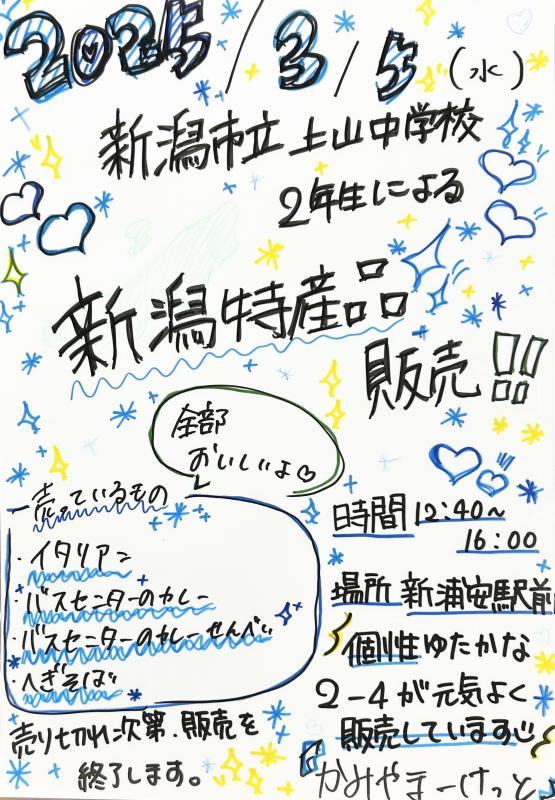 2025/3/5(水)
新潟市立上山中学校
2年生による
新潟特産品
販売!!
全部
おいしいよ♡
売っているもの
・イタリアン
・バスセンターのカレー
・バスセンターのカレーせんべい
・へぎそば
売り切れ次第、販売を
終了します。
時間 12:40~
16:00
場所 新浦安駅前
個性ゆたかな
2-4が元気よく
販売しています
かみやまーけっと